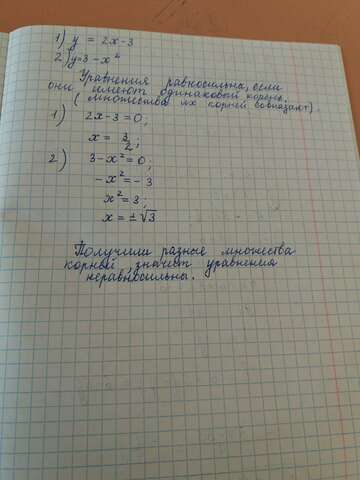 1) y = 2x-3
2) y=3-x²
Уравнения равносильна, если
они имеют одинаковый корень
(множества их корней совпадают).
1) 2x-3=0;
x = 3/2;
2) 3-x²=0;
-x²=-3
x²=3;
x=±√3
Получили разные множества
корный, значит уравнения
неравносильны.